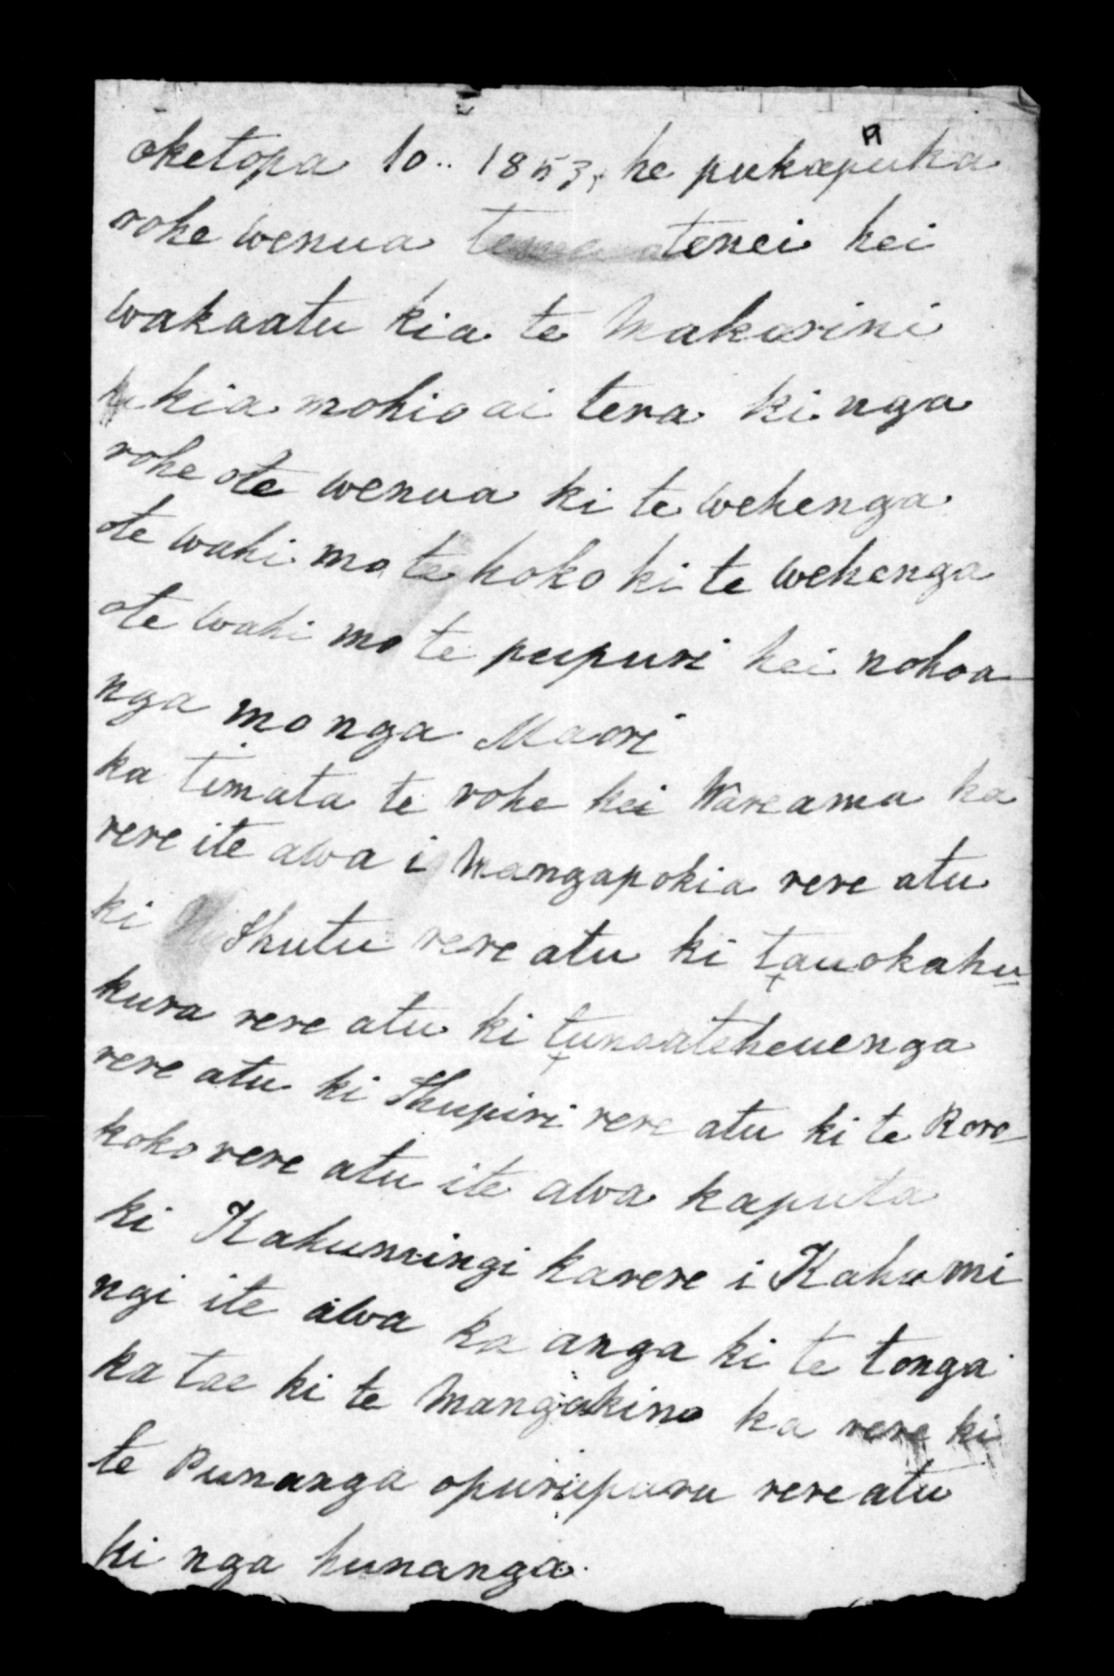 oketopa 10.. 1853, he pukapuka
rohe wenua tenei kei
wakaatu kia te Makarini
kia mohio ai tera ki nga
rohe ote wenua ki te wehenga
ote wahi mo te hoko ki te wehenga
ote wahi mo te pupuri hei nohoa
nga mo nga Maori
ka timata te rohe kei Wareama ka
rere ite awa i Mangapokia rere atu
ki Ihutu rere atu ki tauokahu
kura rere atu ki tunaateheuenga
rere atu ki Ihupiri rere atu ki te Rore
koko rere atu ite awa kaputa
ki Kahumingi karere i Kahumi
ngi ite awa ka anga ki te tonga
ka tae ki te Mangakino ka rere ki
te Punanga opuriupuru rere atu
ki nga hunanga.